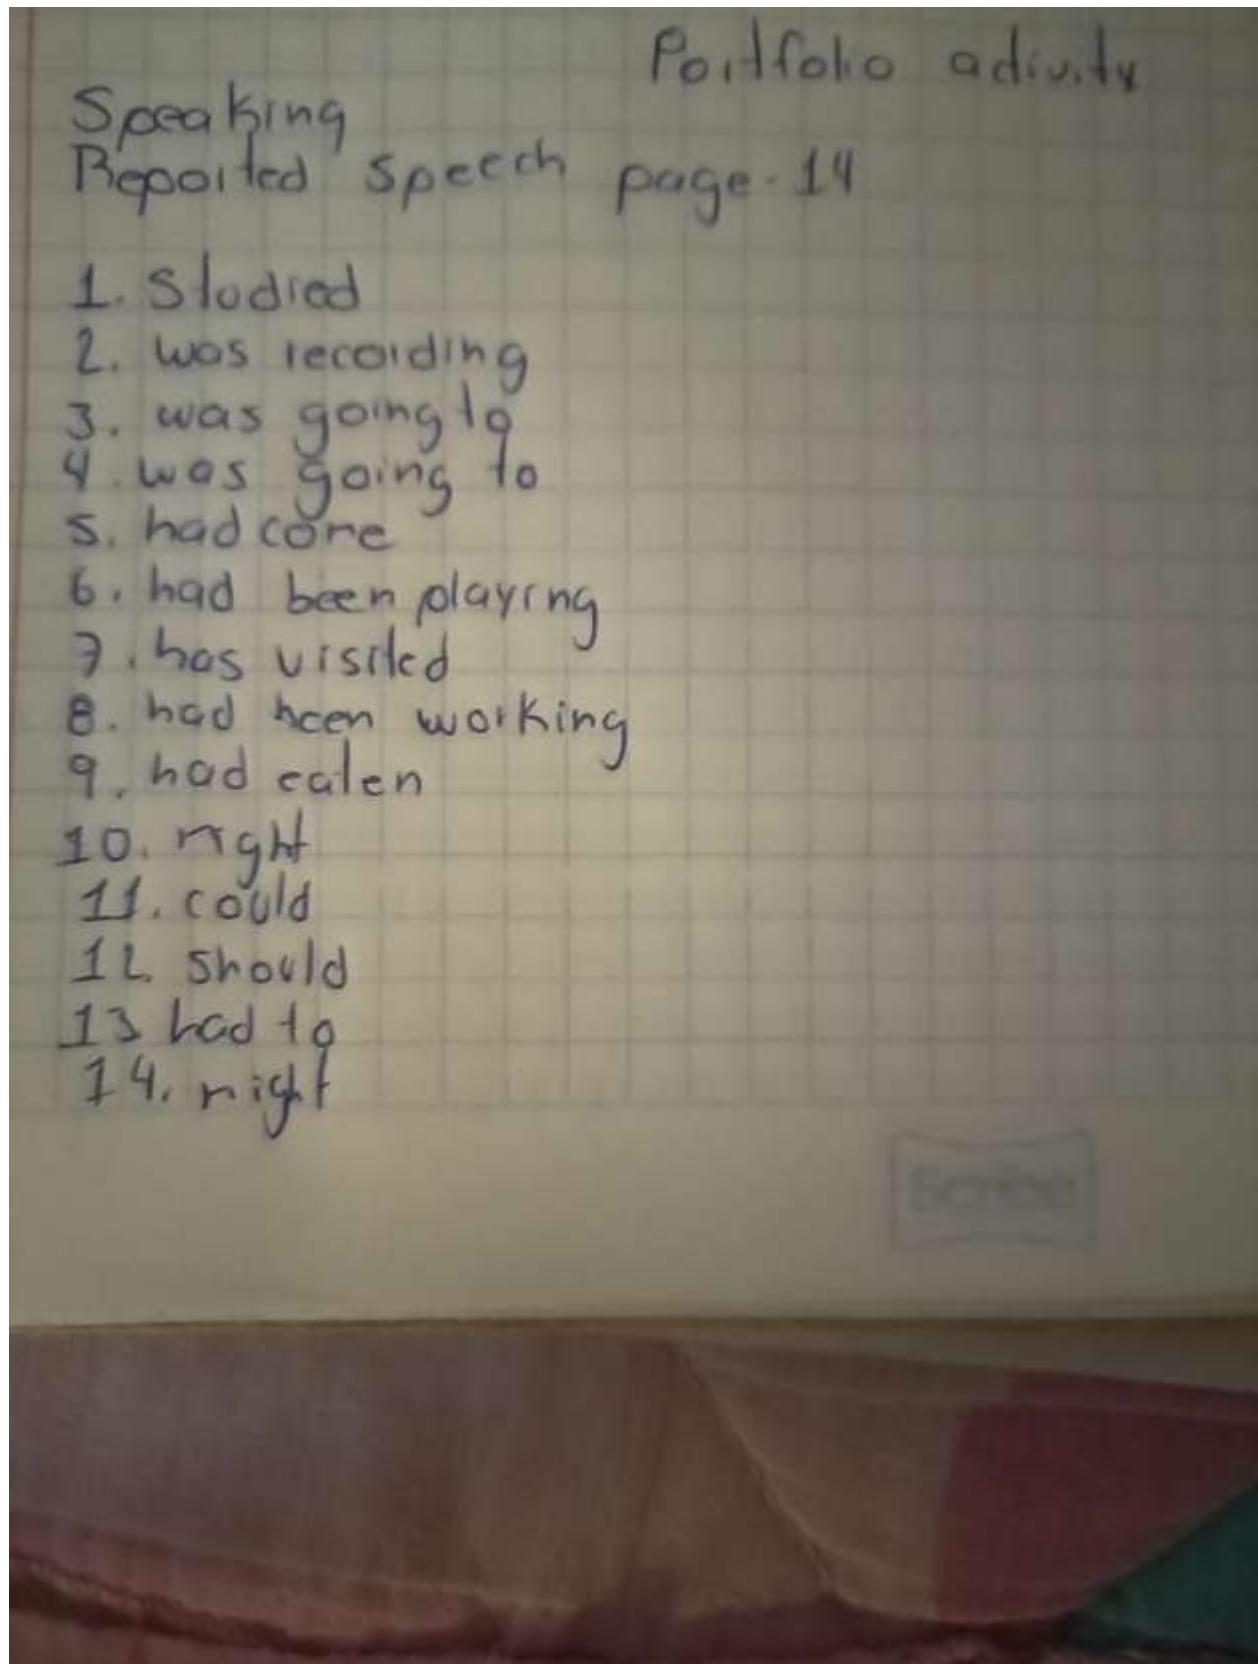 Portfolio activity
Speaking
Reported speech page. 14
1. Studied
2. was recording
3. was going to
4. was going to
5. had core
6. had been playing
7. has visited
8. had been working
9. had eaten
10. might
11. could
12. should
13 had to
14. might
Scribe